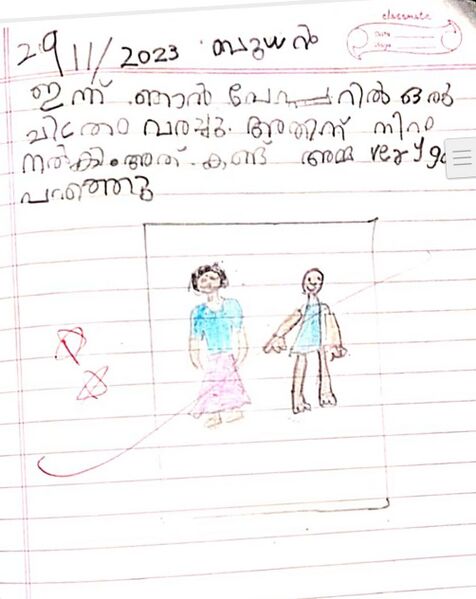 classmate
Date
Page
29/11/2023 ബുധൻ
ഇന്ന് ഞാൻ പേപ്പറിൽ ഒരു
ചിത്രം വരച്ചു. അതിന് നിറം
നൽകി. അത് കണ്ട് അമ്മ very
പറഞ്ഞു